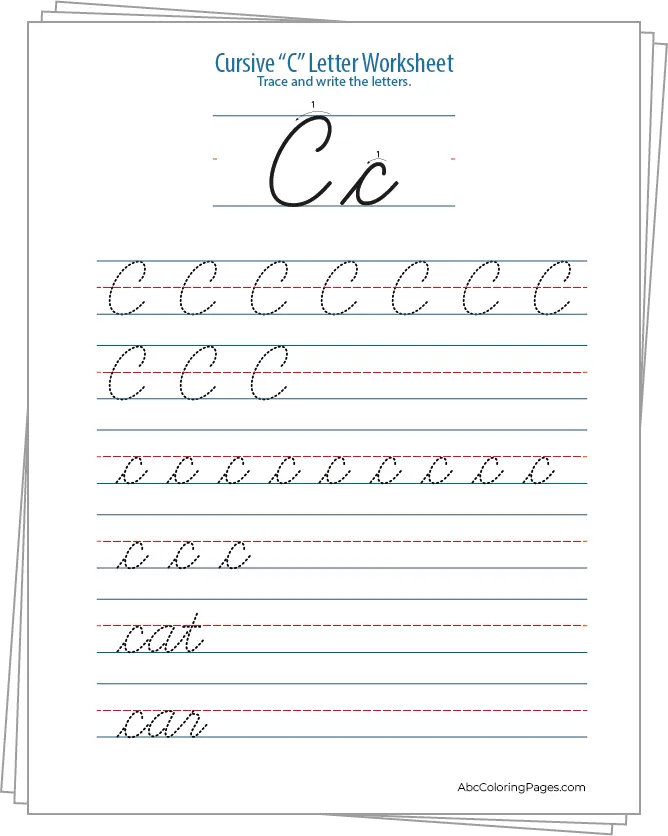 Cursive “C” Letter Worksheet
Trace and write the letters.
1
1
C c
C C C C C C C
C C C
c c c c c c c c c
c c c
cat
car
AbcColoringPages.com